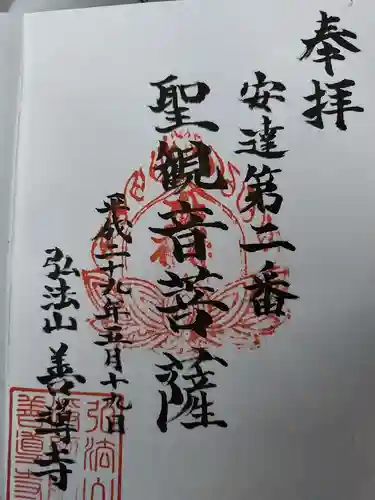 奉拝
安達第二番
聖観音菩薩
平成二十九年五月十九日
弘法山
善導寺